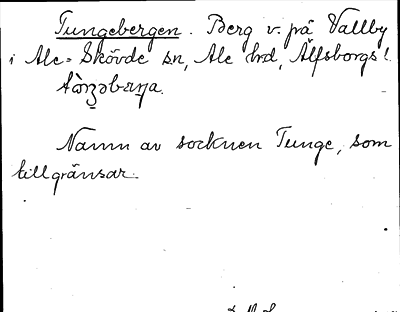 Tungebergen. Berg v. på Vallby
i Ale-Skövde sn, Ale hd, Älfsborgs l.
Namn av socknen Tunge, som
tillgränsar.